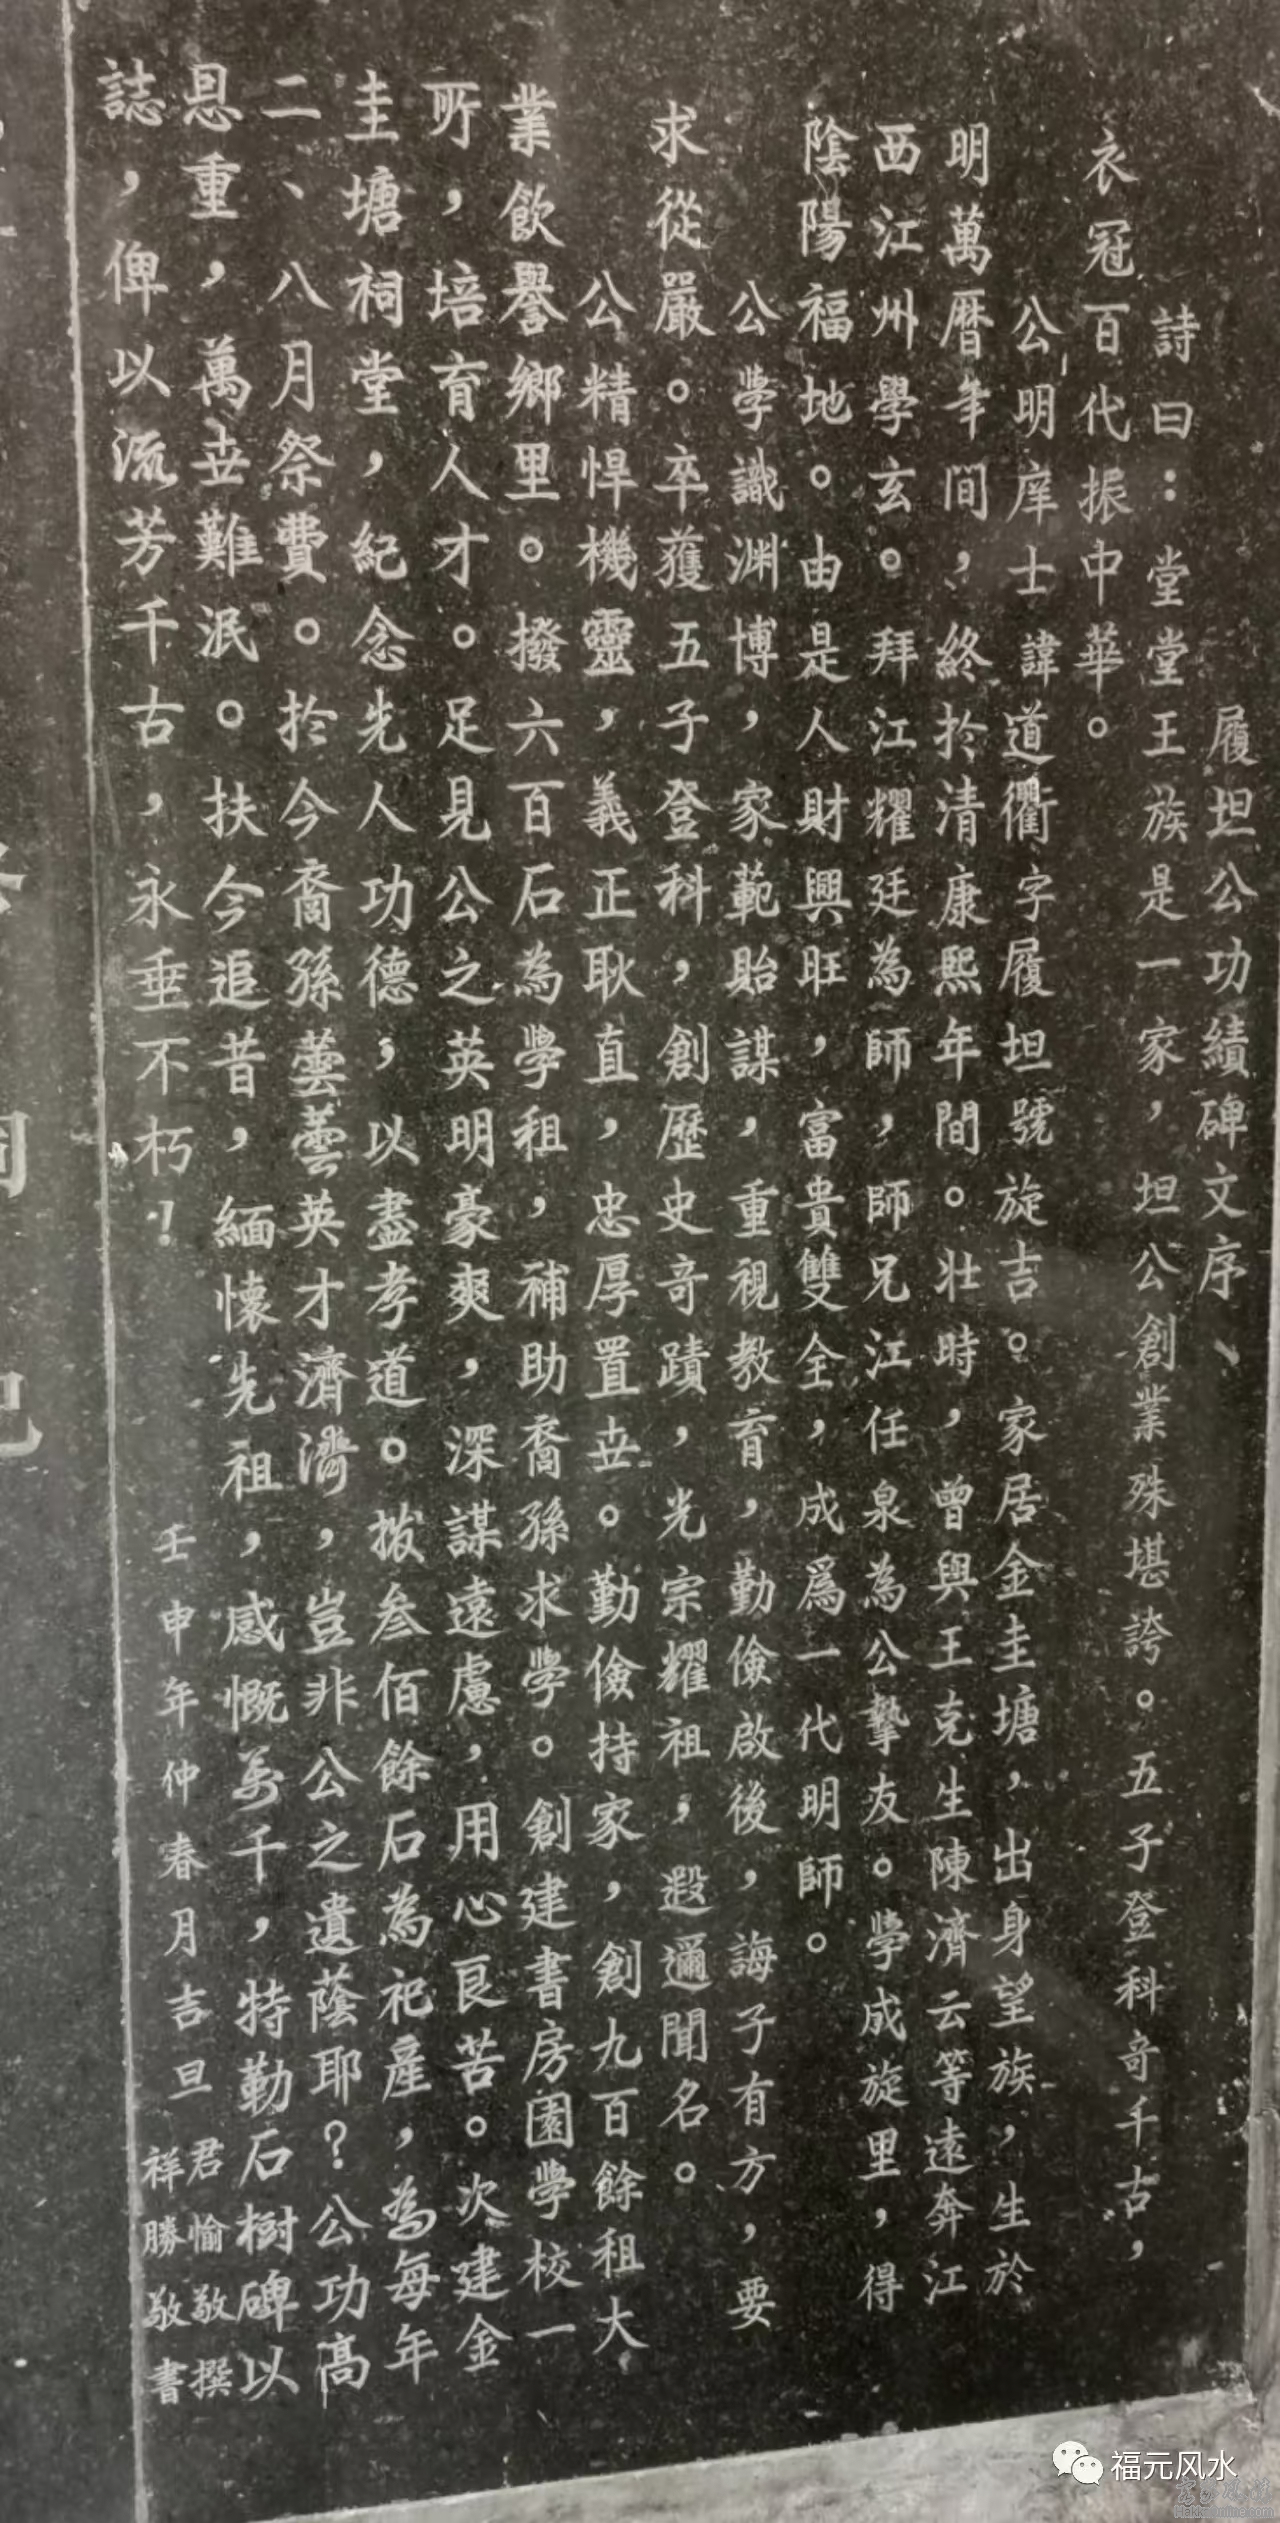 履坦公功績碑文序
詩曰：堂堂王族是一家，坦公創業殊堪誇。五子登科奇千古，
衣冠百代振中華。
公明庠士諱道衢字履坦號旋吉。家居金圭塘，出身望族，生於
明萬曆年間，終於清康熙年間。壯時，曾與王克生陳濟云等遠奔江
西江州學玄。拜江耀廷為師，師兄江任泉為公摯友。學成旋里，得
陰陽福地。由是人財興旺，富貴雙全，成爲一代明師。
公學識渊博，家範貽謀，重視教育，勤儉啟後，誨子有方，要
求從嚴。卒獲五子登科，創歷史奇蹟，光宗耀祖，遐邇聞名。
公精悍機靈，義正耿直，忠厚置世。勤儉持家，創九百餘租大
業飲譽鄉里。撥六百石為學租，補助裔孫求學。創建書房園學校一
所，培育人才。足見公之英明豪爽，深謀遠慮，用心良苦。次建金
圭塘祠堂，紀念先人功德，以盡孝道。拔叁佰餘石為祀產，為每年
二、八月祭費。於今裔孫蕓蕓英才濟濟，豈非公之遺蔭耶？公功高
恩重，萬世難泯。扶今追昔，緬懷先祖，感慨萬千，特勒石樹碑以
誌，俾以流芳千古，永垂不朽！
壬申年仲春月吉旦
君愉敬撰
祥勝敬書
福元风水
Hakkaonline.com